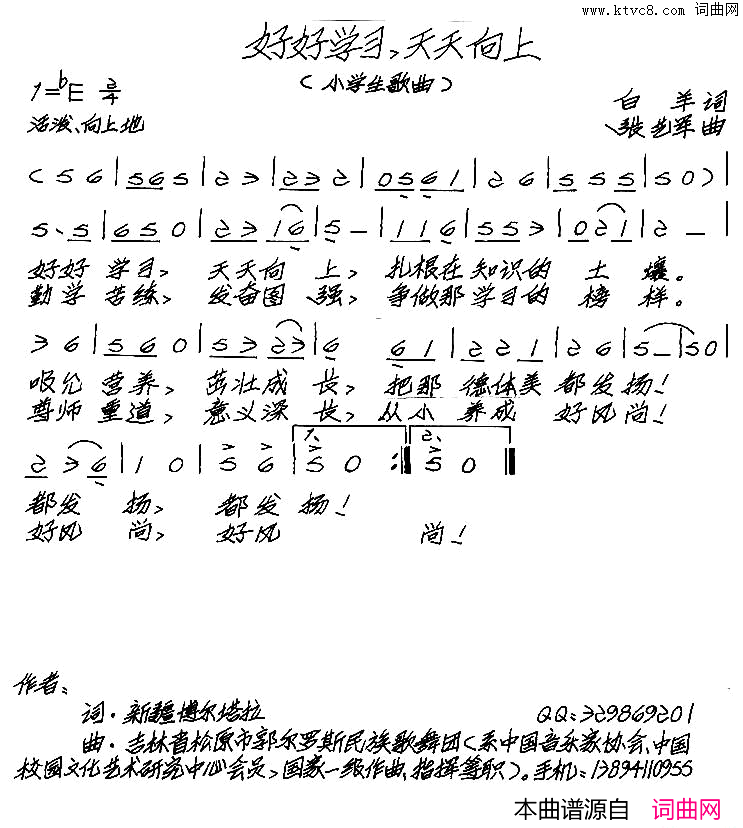 www.ktvc8.com 词曲网
好好学习,天天向上
(小学生歌曲)
1=bE 2/4
白羊词
活泼、向上地
张艺军曲
(5 6 | 5 6 5 | 2 3 | 2 3 2 | 0 5 6 1 | 2 6 | 5 5 5 | 5 0) |
5. 5 | 6 5 0 | 2 3 1 6 | 5 — | 1 1 6 | 5 5 3 | 0 2 1 | 2 — |
好好学习, 天天向上, 扎根在知识的土壤。
勤学苦练, 发奋图强, 争做那学习的榜样。
3 6 | 5 6 0 | 5 3 2 3 | 6 6 1 | 2 2 1 | 2 6 | 5 — | 5 0 |
吸允营养, 茁壮成长, 把那德体美都发扬!
尊师重道, 意义深长, 从小养成好风尚!
2 3 6 | 1 0 | 5 6 | 1. 5 0 :| 2. 5 0 ‖
都发扬, 都发扬!
好风尚, 好风尚!
作者:
词·新疆博尔塔拉 QQ:329869201
曲·吉林省松原市郭尔罗斯民族歌舞团(系中国音乐家协会、中国
校园文化艺术研究中心会员,国家一级作曲、指挥等职)。手机:13894110955
本曲谱源自 词曲网